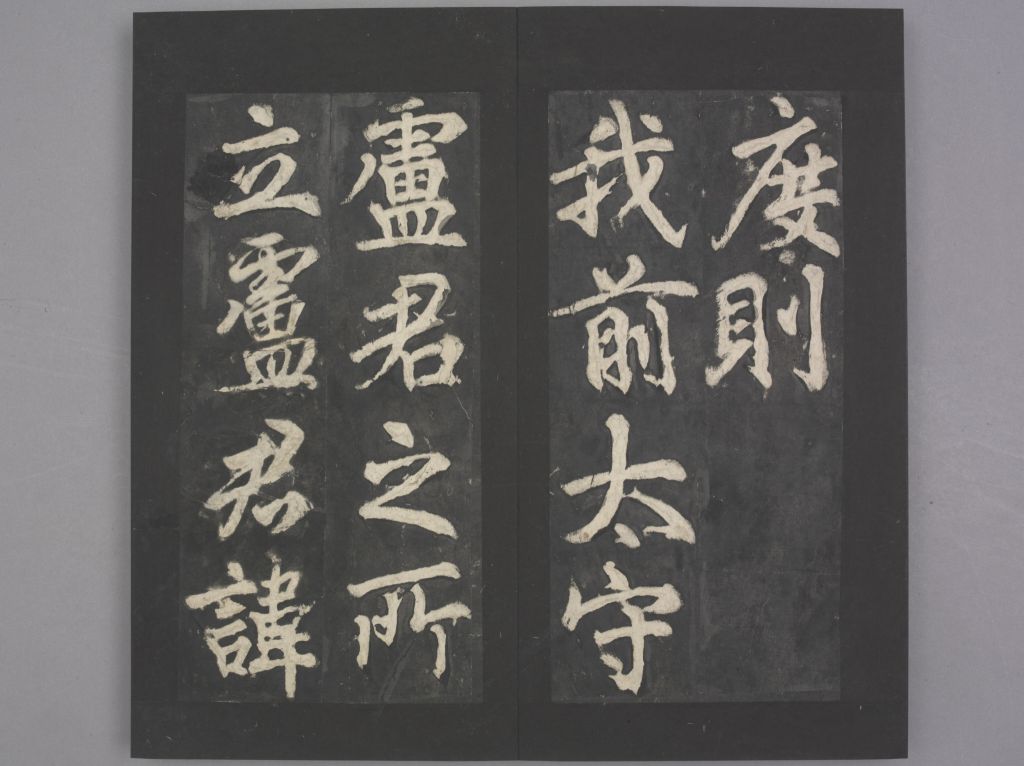 度則
我前太守
盧君之所
立盧君諱